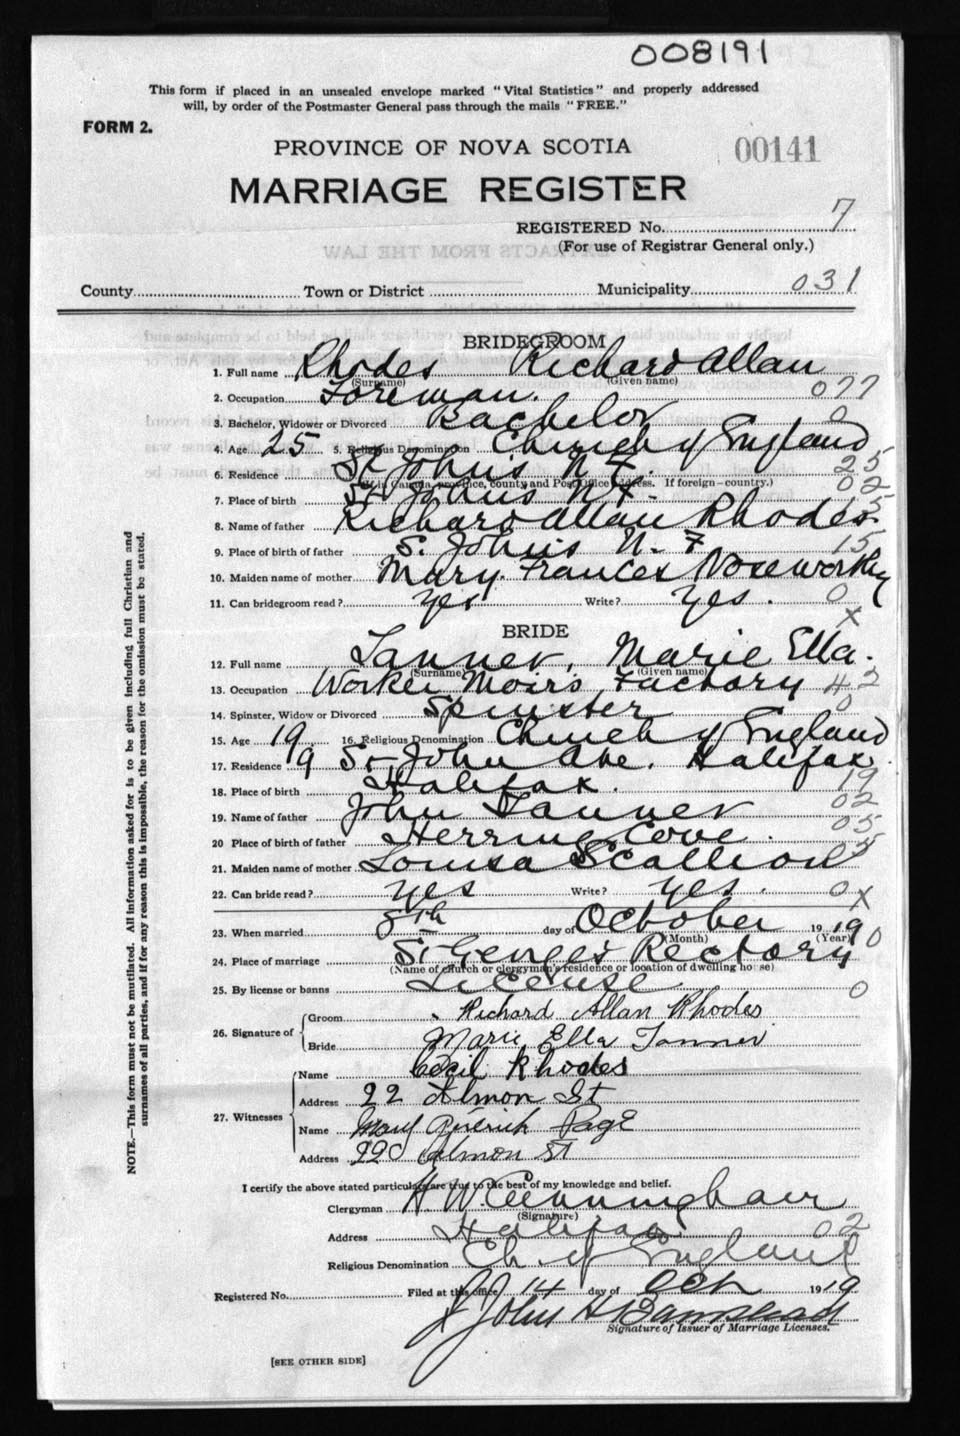 008191
This form if placed in an unsealed envelope marked "Vital Statistics" and properly addressed
will, by order of the Postmaster General pass through the mails "FREE."
FORM 2.
PROVINCE OF NOVA SCOTIA
00141
MARRIAGE REGISTER
REGISTERED No. 7
(For use of Registrar General only.)
County Town or District Municipality 031
BRIDEGROOM
1. Full name Rhodes Richard Allan
(Surname) (Given name)
2. Occupation Foreman. 077
3. Bachelor, Widower or Divorced Bachelor 0
4. Age 25 5. Religious Denomination Church of England
6. Residence St. John's N F. 25
(If in Canada, province, county and Post Office address. If foreign—country.) 02
7. Place of birth St Johns N F-
8. Name of father Richard Allan Rhodes
9. Place of birth of father S. John's N. F 15
10. Maiden name of mother Mary. Frances Noseworthy
11. Can bridegroom read? yes Write? yes. 0
x
BRIDE
12. Full name Tanner, Marie Ella.
(Surname) (Given name)
13. Occupation Worker Moirs Factory 42
14. Spinster, Widow or Divorced Spinster 0
15. Age 19. 16. Religious Denomination Church of England
17. Residence 19 St John Ave. Halifax.
18. Place of birth Halifax. 19
19. Name of father John Tanner 02
20 Place of birth of father Herring Cove. 05
21. Maiden name of mother Louisa Scallion
22. Can bride read? yes Write? yes. 0
x
23. When married 8th day of October 19 19
(Month) (Year) 0
24. Place of marriage St Georges Rectory
(Name of church or clergyman's residence or location of dwelling house)
25. By license or banns License 0
26. Signature of Groom Richard Allan Rhodes
Bride Marie Ella Tanner
27. Witnesses Name Cecil Rhodes
Address 22 Almon St
Name Mary Page
Address 220 Almon St
I certify the above stated particulars are true to the best of my knowledge and belief.
Clergyman H. W. Cunningham
(Signature)
Address Halifax 02
Religious Denomination Ch. of England 0
Registered No. Filed at this office 14 day of Oct 1919
John H Barnstead
Signature of Issuer of Marriage Licenses.
[SEE OTHER SIDE]
NOTE.—This form must not be mutilated. All information asked for is to be given including full Christian and
surnames of all parties, and if for any reason this is impossible, the reason for the omission must be stated.